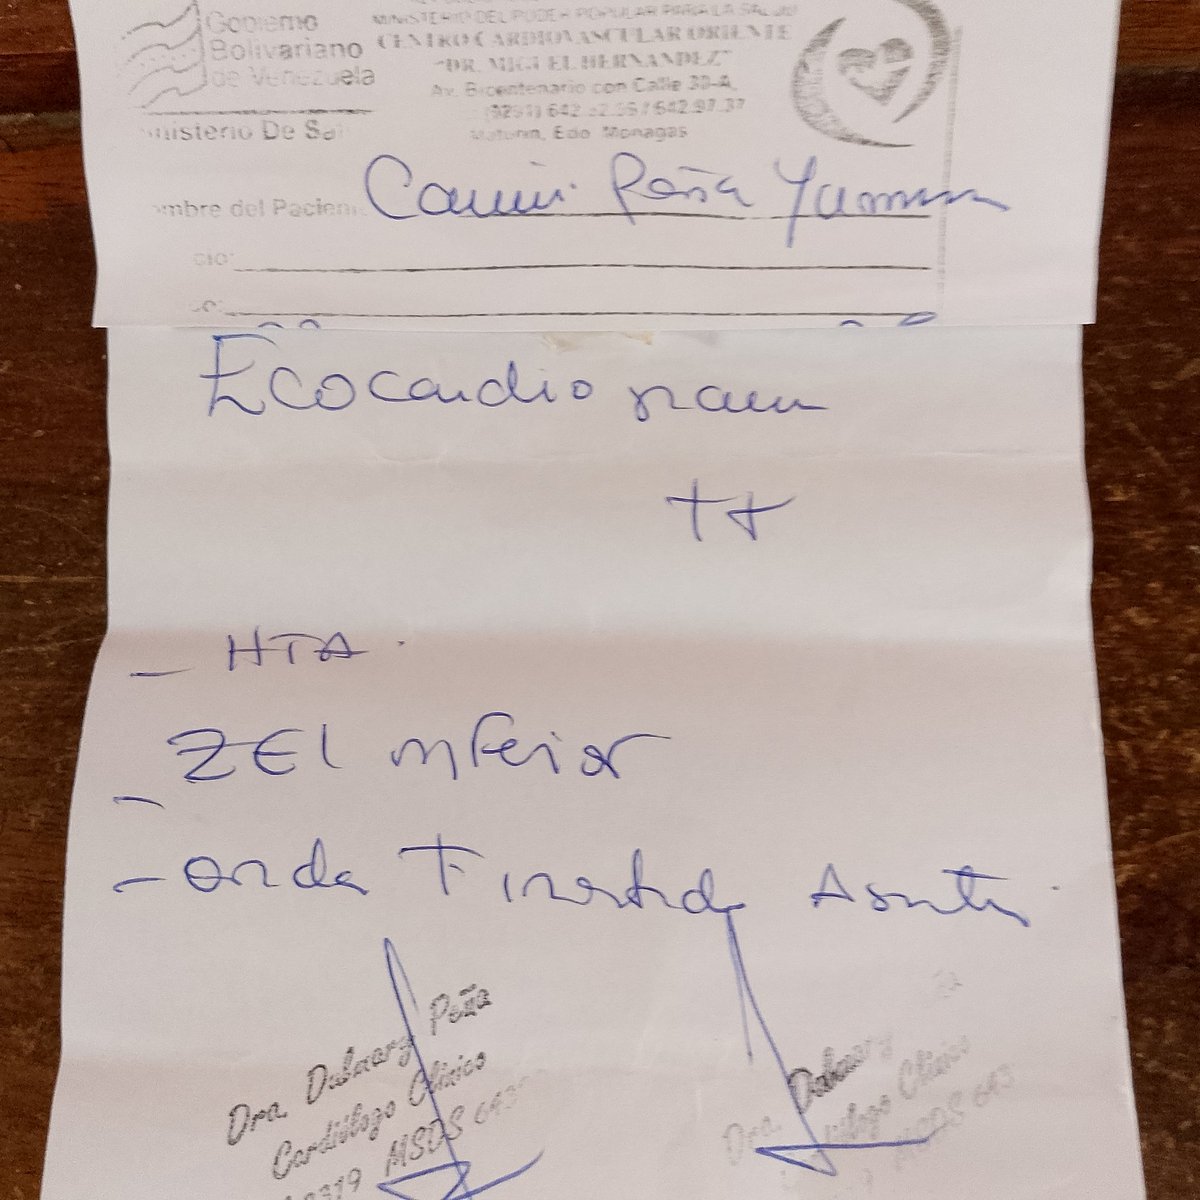 Gobierno
Bolivariano
de Venezuela
Ministerio De Sa
MINISTERIO DEL PODER POPULAR PARA LA SALUD
CENTRO CARDIOVASCULAR ORIENTE
"DR. MIGUEL HERNANDEZ"
Av. Bicentenario con Calle
Maturin, Edo. Monagas
ombre del Pacien Peña
Ecocardio
++
- HTA.
- ZEI inferior
- onda T invertida
Dra. Peña
Cardiólogo Clínico
MSDS 643
Dra.
Cardiólogo Clínico
MSDS 643